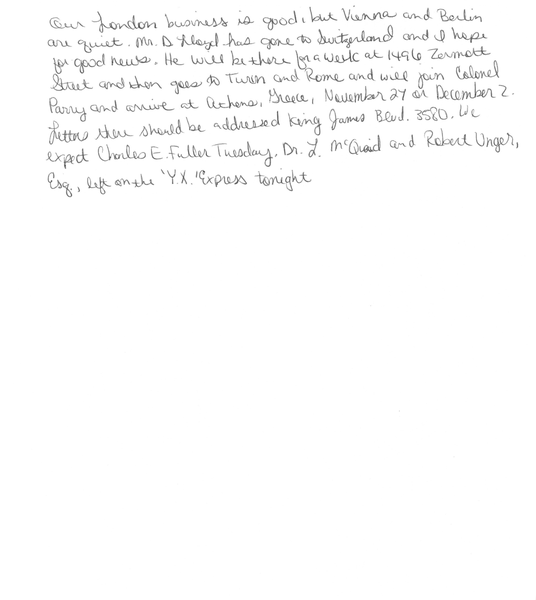 Our London business is good, but Vienna and Berlin
are quiet. Mr. D Lloyd has gone to Switzerland and I hope
for good news. He will be there for a week at 1496 Zermott
Street and then goes to Turin and Rome and will join Colonel
Parry and arrive at Athens, Greece, November 27 or December 2.
Letters there should be addressed King James Blvd. 3580. We
expect Charles E. Fuller Tuesday. Dr. L. McQuaid and Robert Unger,
Esq., left on the 'Y.X.' Express tonight